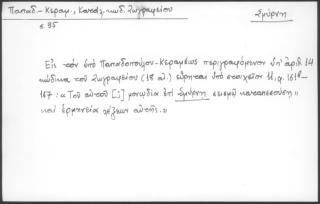 Παπαδ.-Κεραμ., Καταλ. κωδ. Ζωγραφείου
Σμύρνη
σ. 95
Εἰς τὸν ὑπὸ Παπαδοπούλου-Κεραμέως περιγραφόμενον ὑπ' ἀριθ. 14
κώδικα τοῦ Ζωγραφείου (18 αἰ.) εὕρηται ὑπὸ στοιχεῖον φ. 161β-
167: «Τοῦ αὐτοῦ [:] μονῳδία ἐπὶ Σμύρνῃ σεισμῷ καταπεσούσῃ
καὶ ἑρμηνεία λέξεων αὐτῆς.»